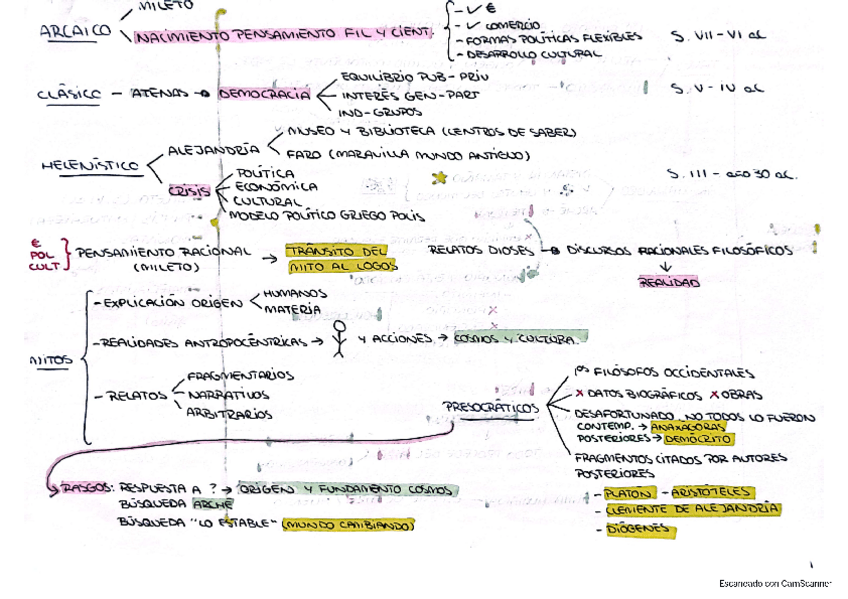 MILETO
ARCAICO
NACIMIENTO PENSAMIENTO FIL Y CIENT.
- ✓ €
- ✓ COMERCIO
- FORMAS POLÍTICAS FLEXIBLES
- DESARROLLO CULTURAL
S. VII - VI aC
CLÁSICO - ATENAS → DEMOCRACIA
EQUILIBRIO PUB - PRIV
INTERÉS GEN - PART
IND - GRUPOS
S. V - IV aC
HELENÍSTICO
ALEJANDRÍA
MUSEO Y BIBLIOTECA (CENTROS DE SABER)
FARO (MARAVILLA MUNDO ANTIGUO)
CRISIS
POLÍTICA
ECONÓMICA
CULTURAL
MODELO POLÍTICO GRIEGO POLIS
S. III - año 30 aC.
€
POL
CULT
PENSAMIENTO RACIONAL
(MILETO)
→ TRÁNSITO DEL
MITO AL LOGOS
RELATOS DIOSES → DISCURSOS RACIONALES FILOSÓFICOS
↓
REALIDAD
MITOS
- EXPLICACIÓN ORIGEN
HUMANOS
MATERIA
- REALIDADES ANTROPOCÉNTRICAS → Y ACCIONES → COSMOS Y CULTURA.
- RELATOS
FRAGMENTARIOS
NARRATIVOS
ARBITRARIOS
PRESOCRÁTICOS
1os FILÓSOFOS OCCIDENTALES
X DATOS BIOGRÁFICOS X OBRAS
DESAFORTUNADO, NO TODOS LO FUERON
CONTEMP. → ANAXÁGORAS
POSTERIORES → DEMÓCRITO
FRAGMENTOS CITADOS POR AUTORES
POSTERIORES
- PLATÓN - ARISTÓTELES
- CLEMENTE DE ALEJANDRÍA
- DIÓGENES
RASGOS: RESPUESTA A ? → ORIGEN Y FUNDAMENTO COSMOS
BÚSQUEDA ARCHÉ
BÚSQUEDA "LO ESTABLE" (MUNDO CAMBIANDO)
1
Escaneado con CamScanner